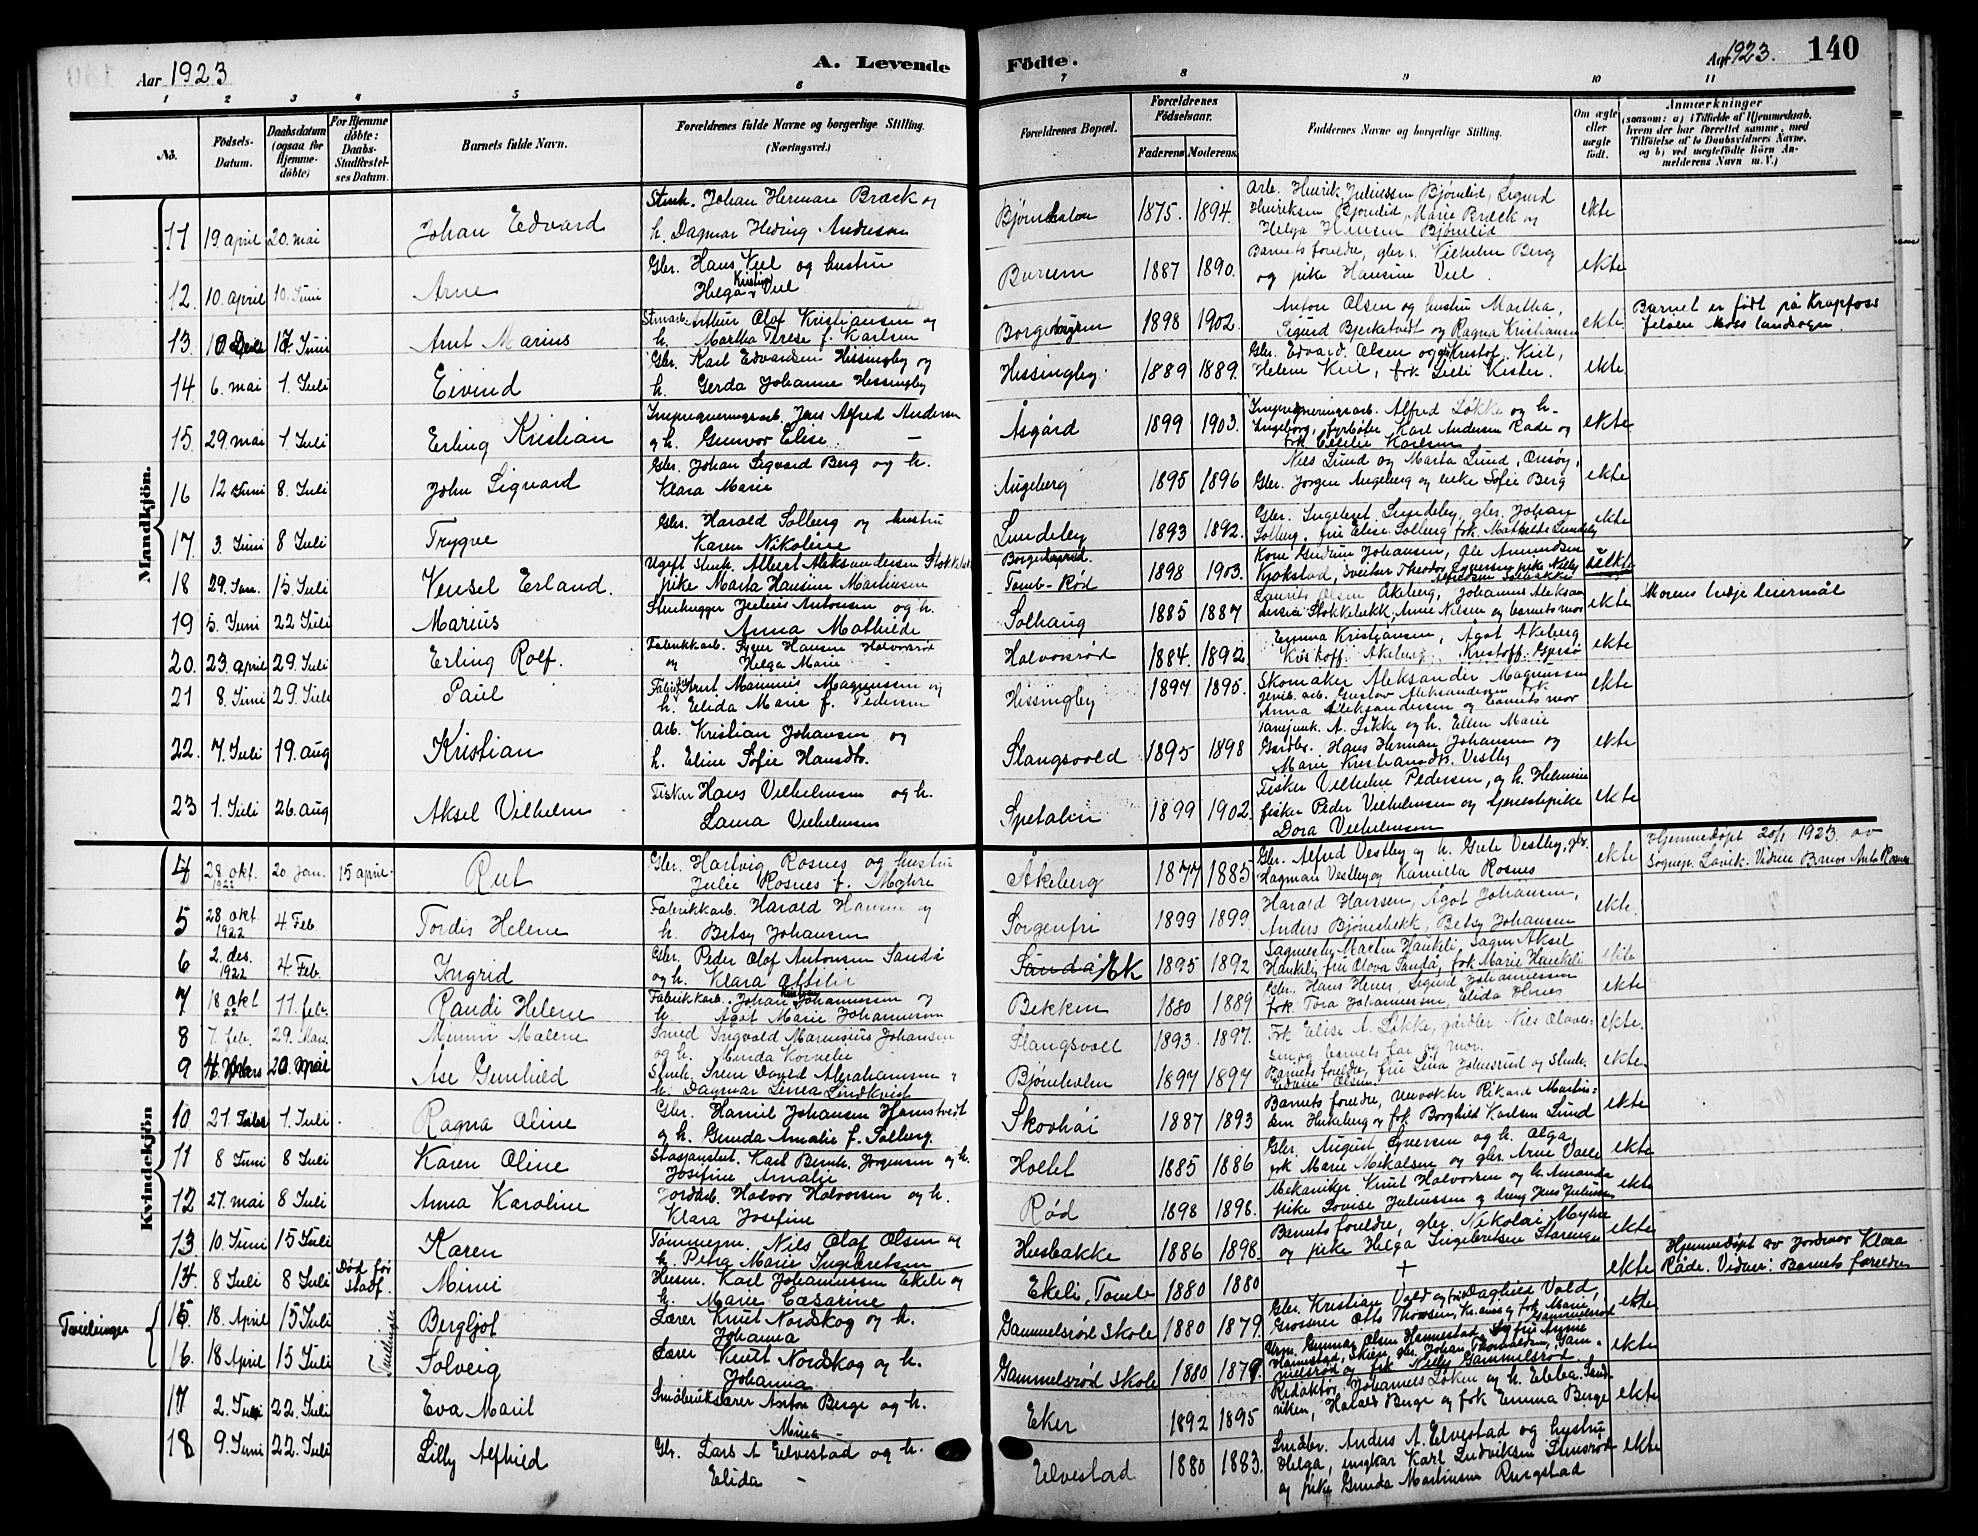 Aar 1923
A. Levende
Födte.
Aar 1923.
140
1 2 3 4 5 6 7 8 9 10 11
No.
Födsels-
Datum.
Daabsdatum
(ogsaa for
Hjemme-
döbte)
For Hjemme
döbte:
Daabs-
Stadfæstel-
ses Datum.
Barnets fulde Navn.
Forældrenes fulde Navne og borgerlige Stilling.
(Næringsvei.)
Forældrenes Bopæl.
Forældrenes
Födselsaar.
Faderens
Moderens
Faddernes Navne og borgerlige Stilling.
Om ægte
eller
uægte
födt.
Anmærkninger
(saasom: a) i Tilfælde af Hjemmedaab,
hvem der har forrettet samme, med
Tilföielse af to Daabsvidners Navne,
og b) ved uægtefödte Börn An-
melderens Navn m. V.)
Mandkjön.
11 19 april 20. mai Johan Edvard
Stenh. Johan Herman Bræck og
h. Dagmar Andersen
1875. 1894.
Arb. Henrik Juliussen Bjørnlid, Sigurd
Henriksen Bjørnlid, Marie Bræck og
Helga Hansen Bjørnlid
ekte
12. 10. april 10. Juni Arne
Gbr. Hans Viel og hustru
Helga Kristine Viel
Burum 1887 1890.
Barnets foreldre, gbr. s. Vilhelm Berg
og pike Hansine Viel.
ekte
13. 17. Juni Arnt Marius
Arthur Olaf Kristiansen og
h. Martha Terese f. Karlsen
1898 1902.
Anton Olsen og hustru Martha,
Sigurd Bjerketvedt og Ragna Kristiansen
ekte
Barnet er født på Krapfoss
Moss landsogn.
14 6. mai 1. Juli Eivind
Gbr. Karl Edvardsen Hissingby og
h. Gerda Johanne Hissingby
Hissingby. 1889 1889.
Gbr. Edvard Olsen og Kristof. Kiel,
Helene Kiel, frk.
ekte
15 29. mai 1 Juli Erling Kristian
Impregneringsarb. Jens Alfred Andersen
og h. Gunvor Elise. —
Åsgård 1899 1903.
Impregneringsarb. Alfred Løkke og h.
Ingeborg, fyrbøter Karl Andersen Råde og
frk Cecilie Karlsen
ekte
16 12 Juni 8. Juli John Sigvard
Gbr. Johan Sigvard Berg og h.
Klara Marie
Augeberg 1895 1896
Nils Lund og Marta Lund, Onsøy,
Gbr. Jørgen Augeberg og enke Sofie Berg
ekte
17. 3. Juni 8 Juli Trygve
Gbr. Harald Solberg og hustru
Karen Nikoline
Lundeby 1893 1892.
Gbr. Ingebret Lundeby, gbr. Johan
Solberg, fru Elise Solberg frk. Mathilde Lundeby
ekte
18 15. Juli Vensel Erland.
Ugift Stenh. Albert Aleksandersen
pike Marta Hansine Martinsen
Tomb-Rød 1898 1903.
Kone Gudrun Johansen, Ole Amundsen
Kjokstad, sveitser Theodor Syversen, pike Nelly
uekte
Morens tredje leiermål
19 5. Juni 22 Juli Marius
Stenhugger Julius Antonsen og h.
Anna Mathilde
Solhaug 1885 1887
Laurits Olsen Åkeberg, Johannes Aleksan
dersen Stokkebekk, Anne Nilsen og barnets mor
ekte
20. 23 april 29. Juli Erling Rolf.
Fabrikkarb. Syver Hansen Halvorsrød
og Helga Marie —
Halvorsrød 1884. 1892
Emma Kristiansen, Ågot Åkeberg
Åkeberg, Kristoff.
ekte
21 8. Juni 29. Juli Paul
Arnt Marinius Magnussen og
h. Elida Marie f. Pedersen
Hissingby 1897 1895.
Skomaker Aleksander Magnussen
jernb. arb. Gustav Aleksandersen frk
Anna Aleksandersen og barnets mor
ekte
22. 7. Juli 19. aug Kristian
Arb. Kristian Johansen og
h. Eline Sofie Hansdtr.
Slangsvold 1895 1898
A. Løkke og h. Ellen Marie
Gårdbr. Hans Herman Johansen og
Marie Kristiansdtr. Vestby
ekte
23 1. Juli 26. aug Aksel Vilhelm
Fisker Hans Vilhelmsen og h.
Laura Vilhelmsen
Spetalen 1899 1902.
Fisker Vilhelm Pedersen, og h. Helmine
fisker Peder Vilhelmsen og tjenestepike
Dora Vilhelmsen
ekte
Kvindekjön
4 28 okt. 1922 20 Jan. 15 april. Rut
Gbr. Hartvig Rosnes og hustru
Julie Rosnes f. Myhre
Åkeberg 1877 1885
Gbr. Alfred Vestby og h. Grete Vestby, gbr.
Hagman Vestby og Kamilla Rosnes
ekte
Hjemmedøpt 20/1 1923 av
Sognepr. Lavik.
5 28 okt 1922 4. Feb Tordis Helene
Fabrikkarb. Harald Hansen og
h. Betsy Johansen
Sorgenfri 1899 1899.
Harald Hansen, Ågot Johansen,
Anders Bjørnebekk, Betsy Johansen
ekte.
6 2. des. 1922 4. Feb. Ingrid
Gbr. Peder Olaf Antonsen Sandå
og h. Klara Ottilie
Sandå Ek 1895 1892
Sagmester Martin Haukeli, Aksel
Haukeli, fru Olova Sandå, frk. Marie Haukeli
ekte
7 18 okt 22 11. feb. Randi Helene
Fabrikkarb. Johan Johannessen og
h. Ågot Marie Johannessen
Bekken 1880 1889
Gbr. Hans Henes, Sigurd Johannessen
frk. Tora Johannessen, Elida Henes
ekte
8 7. feb. 29. Mars. Minni Malene
Smed Ingvald Marensius Johansen
og h. Minda Kornelie
Slangsvoll 1893. 1897.
Frk Elise A. Løkke, gårdbr. Nils Olaves=
sen og barnets far og mor.
ekte.
9 20. Mai Åse Gunhild
Stenh. David Abrahamsen
h. Dagmar Linea Lindkvist
Bjørnholm 1897 1897
Barnets foreldre, fru Lina Johnsrud og Stenh.
Olsen
ekte.
10 1. Juli Ragna Oline
Gbr. Hamil Johansen Hamstvedt
og h. Gunda Amalie f. Solberg.
Skovhøi 1887 1893
Barnets foreldre, Rikard Martin=
sen Huikeberg og frk. Borghild Karlsen Lund
ekte
11 8 Juni 8 Juli Karen Oline
Stasjonsbet. Karl Bernh. Jørgensen og h.
Josefine Amalie
Holtet 1885 1886
Gbr. August Syversen og h. Olga,
frk Marie Mikalsen og gbr. Arne
ekte
12 27. mai 8 Juli Anna Karoline
Jordarb. Halvor Halvorsen og h.
Klara Josefine
Rød 1898 1898.
Mekaniker Knut Halvorsen og h. Amanda
pike Lovise Juliussen og dreng Jens Juliussen
ekte
13 10. Juni 15 Juli Karen
Tømmerm. Nils Olaf Olsen og
h. Petra Marie Ingebretsen
Husbakke 1886 1898.
Barnets foreldre, gbr. Nikolai Myhre
og pike Helga Ingebretsen Starengen
ekte
14. 8 Juli 8 Juli Død før stadf. Minni
Husm. Karl Johannessen Ekeli og
h. Marie Cæsarine
Ekeli, Tomb 1880 1880
†
ekte
Hjemmedøpt av Jordmor Klara
Råde. Vidner: Barnets foreldre
Tvillinger
15. 18. April 15 Juli Tvillinger Bergljot
Lærer Knut Nordskog og h.
Johanna
Gammelsrød Skole 1880 1879.
Gbr. Kristian Vold og fru Daghild Vold,
Grosserer Otto Thoresen, Kr.ania og frk. Marie
Gammelsrød
ekte
16. 18 April 15 Juli Solveig
Lærer Knut Nordskog og h.
Johanna
Gammelsrød Skole 1880 1879.
Urm. Gunnar Olsen Hannestad, og fru Anne
Hannestad, Skien, gbr. Johan Thorvaldsen, Gam-
melsrød og frk Nelly Gammelsrød.
ekte
17 22. Juli Eva Marit
Småbrukslærer Anton Berge og h.
Mina —
Eker 1892 1895
Redaktør Johannes Løken og h. Ebba,
Harald Berge og frk Emma Berge
ekte
18 9. Juni 22. Juli Lilly Alfhild
Gbr. Lars A. Elvestad og h.
Elida —
Elvestad 1880 1883.
Småbr. Anders A. Elvestad og hustru
Helga, ungkar Karl Ludviksen Stensrød
og pike Gunda Martinsen Rugstad
ekte